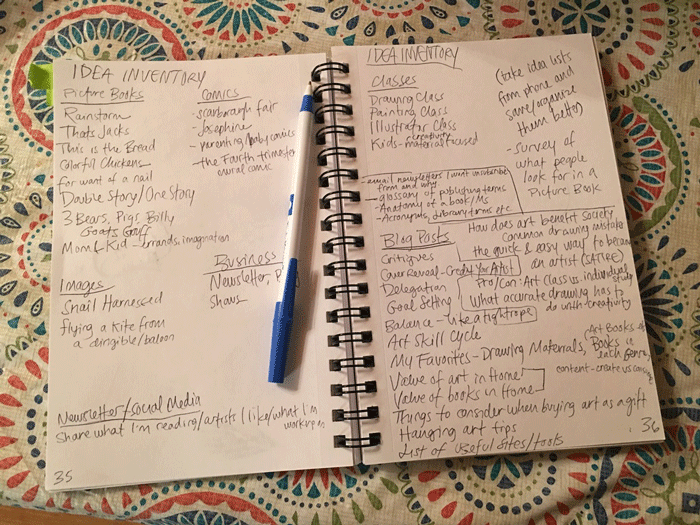 IDEA INVENTORY
Picture Books
Rainstorm
Thats Jacks
This is the Bread
Colorful Chickens
for want of a nail
Double Story/One Story
3 Bears, Pigs, Billy
Goats Gruff
Mom & Kid - Errands, imagination
Comics
- scarborough fair
- Josephine
- parenting/baby comics
- the Fourth trimester
mural comic
Business
Newsletter, P
Shaws
Images
Snail Harnessed
flying a kite from
a dirigible/baloon
Newsletter/Social Media
Share what I'm reading/artists I like/what I'm
working on
35
IDEA INVENTORY
Classes
Drawing Class
Painting Class
Illustrator Class
Kids - material focused
creativity
(take idea lists
from phone and
save/organize
them better)
- survey of
what people
look for in a
Picture Book
- email newsletters I want unsubscribe
from and why
- glossary of publishing terms
- Anatomy of a book/Ms
- Acronyms, library terms etc
Blog Posts
Critiques
Cover Reveal - Credit Your Artist
Delegation
Goal Setting
Balance - like a tightrope
Art Skill Cycle
My Favorites - Drawing Materials,
Value of art in Home
Value of books in Home
Things to consider when buying art as a gift
Hanging art tips
List of useful sites/tools
How does art benefit society
common drawing mistake
the quick & easy way to become
an artist (SATIRE)
Pro/Con: Art Class vs. individual
study
What accurate drawing has to
do with creativity
(Art Books
Books in
each genre,
content - create vs
36